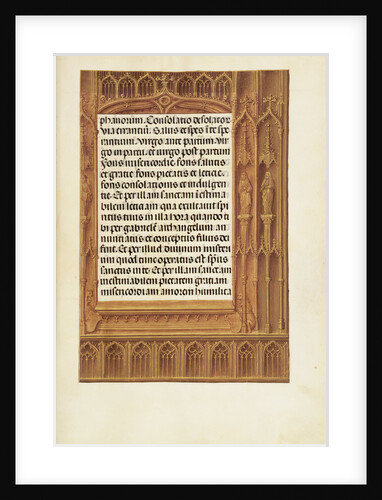 phanorum. Consolatio desolator
via errantiū. Salus et spes ī te spe
rantium. Virgo ante partum vir
go in partu. et virgo post partum
Fons misericordie. fons salutis
et gratie. fons pietatis et leticie.
fons consolationis et indulgen
tie. Et per illam sanctam inestima
bilem leticiam qua exultauit spi
ritus tuus in illa hora quando ti
bi per gabrielem archangelum an
nuntiatus et conceptus filius dei
fuit. Et per illud diuinum misteri
um quod tunc operatus est spūs
sanctus in te. Et per illam sanctam
inestimabilem pietatem gratiam
misericordiam amorem humilita